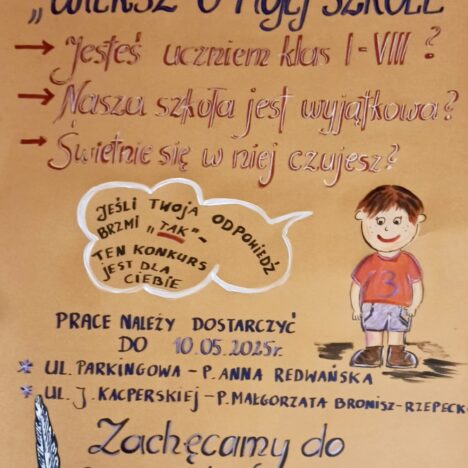 „WIERSZ O MOJEJ SZKOLE
→ Jesteś uczniem klas I-VIII?
→ Nasza szkoła jest wyjątkowa?
→ Świetnie się w niej czujesz?
JEŚLI TWOJA ODPOWIEDŹ
BRZMI „TAK" -
TEN KONKURS
JEST DLA
CIEBIE
13
PRACE NALEŻY DOSTARCZYĆ
DO 10.05.2025r.
* UL. PARKINGOWA - P. ANNA REDWAŃSKA
* UL. J. KACPERSKIEJ - P. MAŁGORZATA BRONISZ-RZEPECK
Zachęcamy do